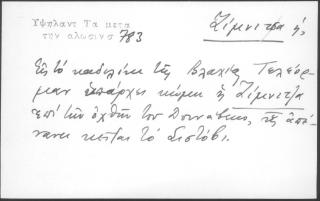 Υψηλαντ Τα μετα
την αλωσιν σ 783
Ζίμνιτζα ἡ,
Εἰς τὸ καδιλίκι τῆς Βλαχίας Τελεόρ-
μαν ὑπάρχει κώμη ἡ Ζίμνιτζα
ἐπὶ τὴν ὄχθην τοῦ Δουνάβεως, ἧς ἀπέ-
ναντι κεῖται τὸ Σιστόβι.